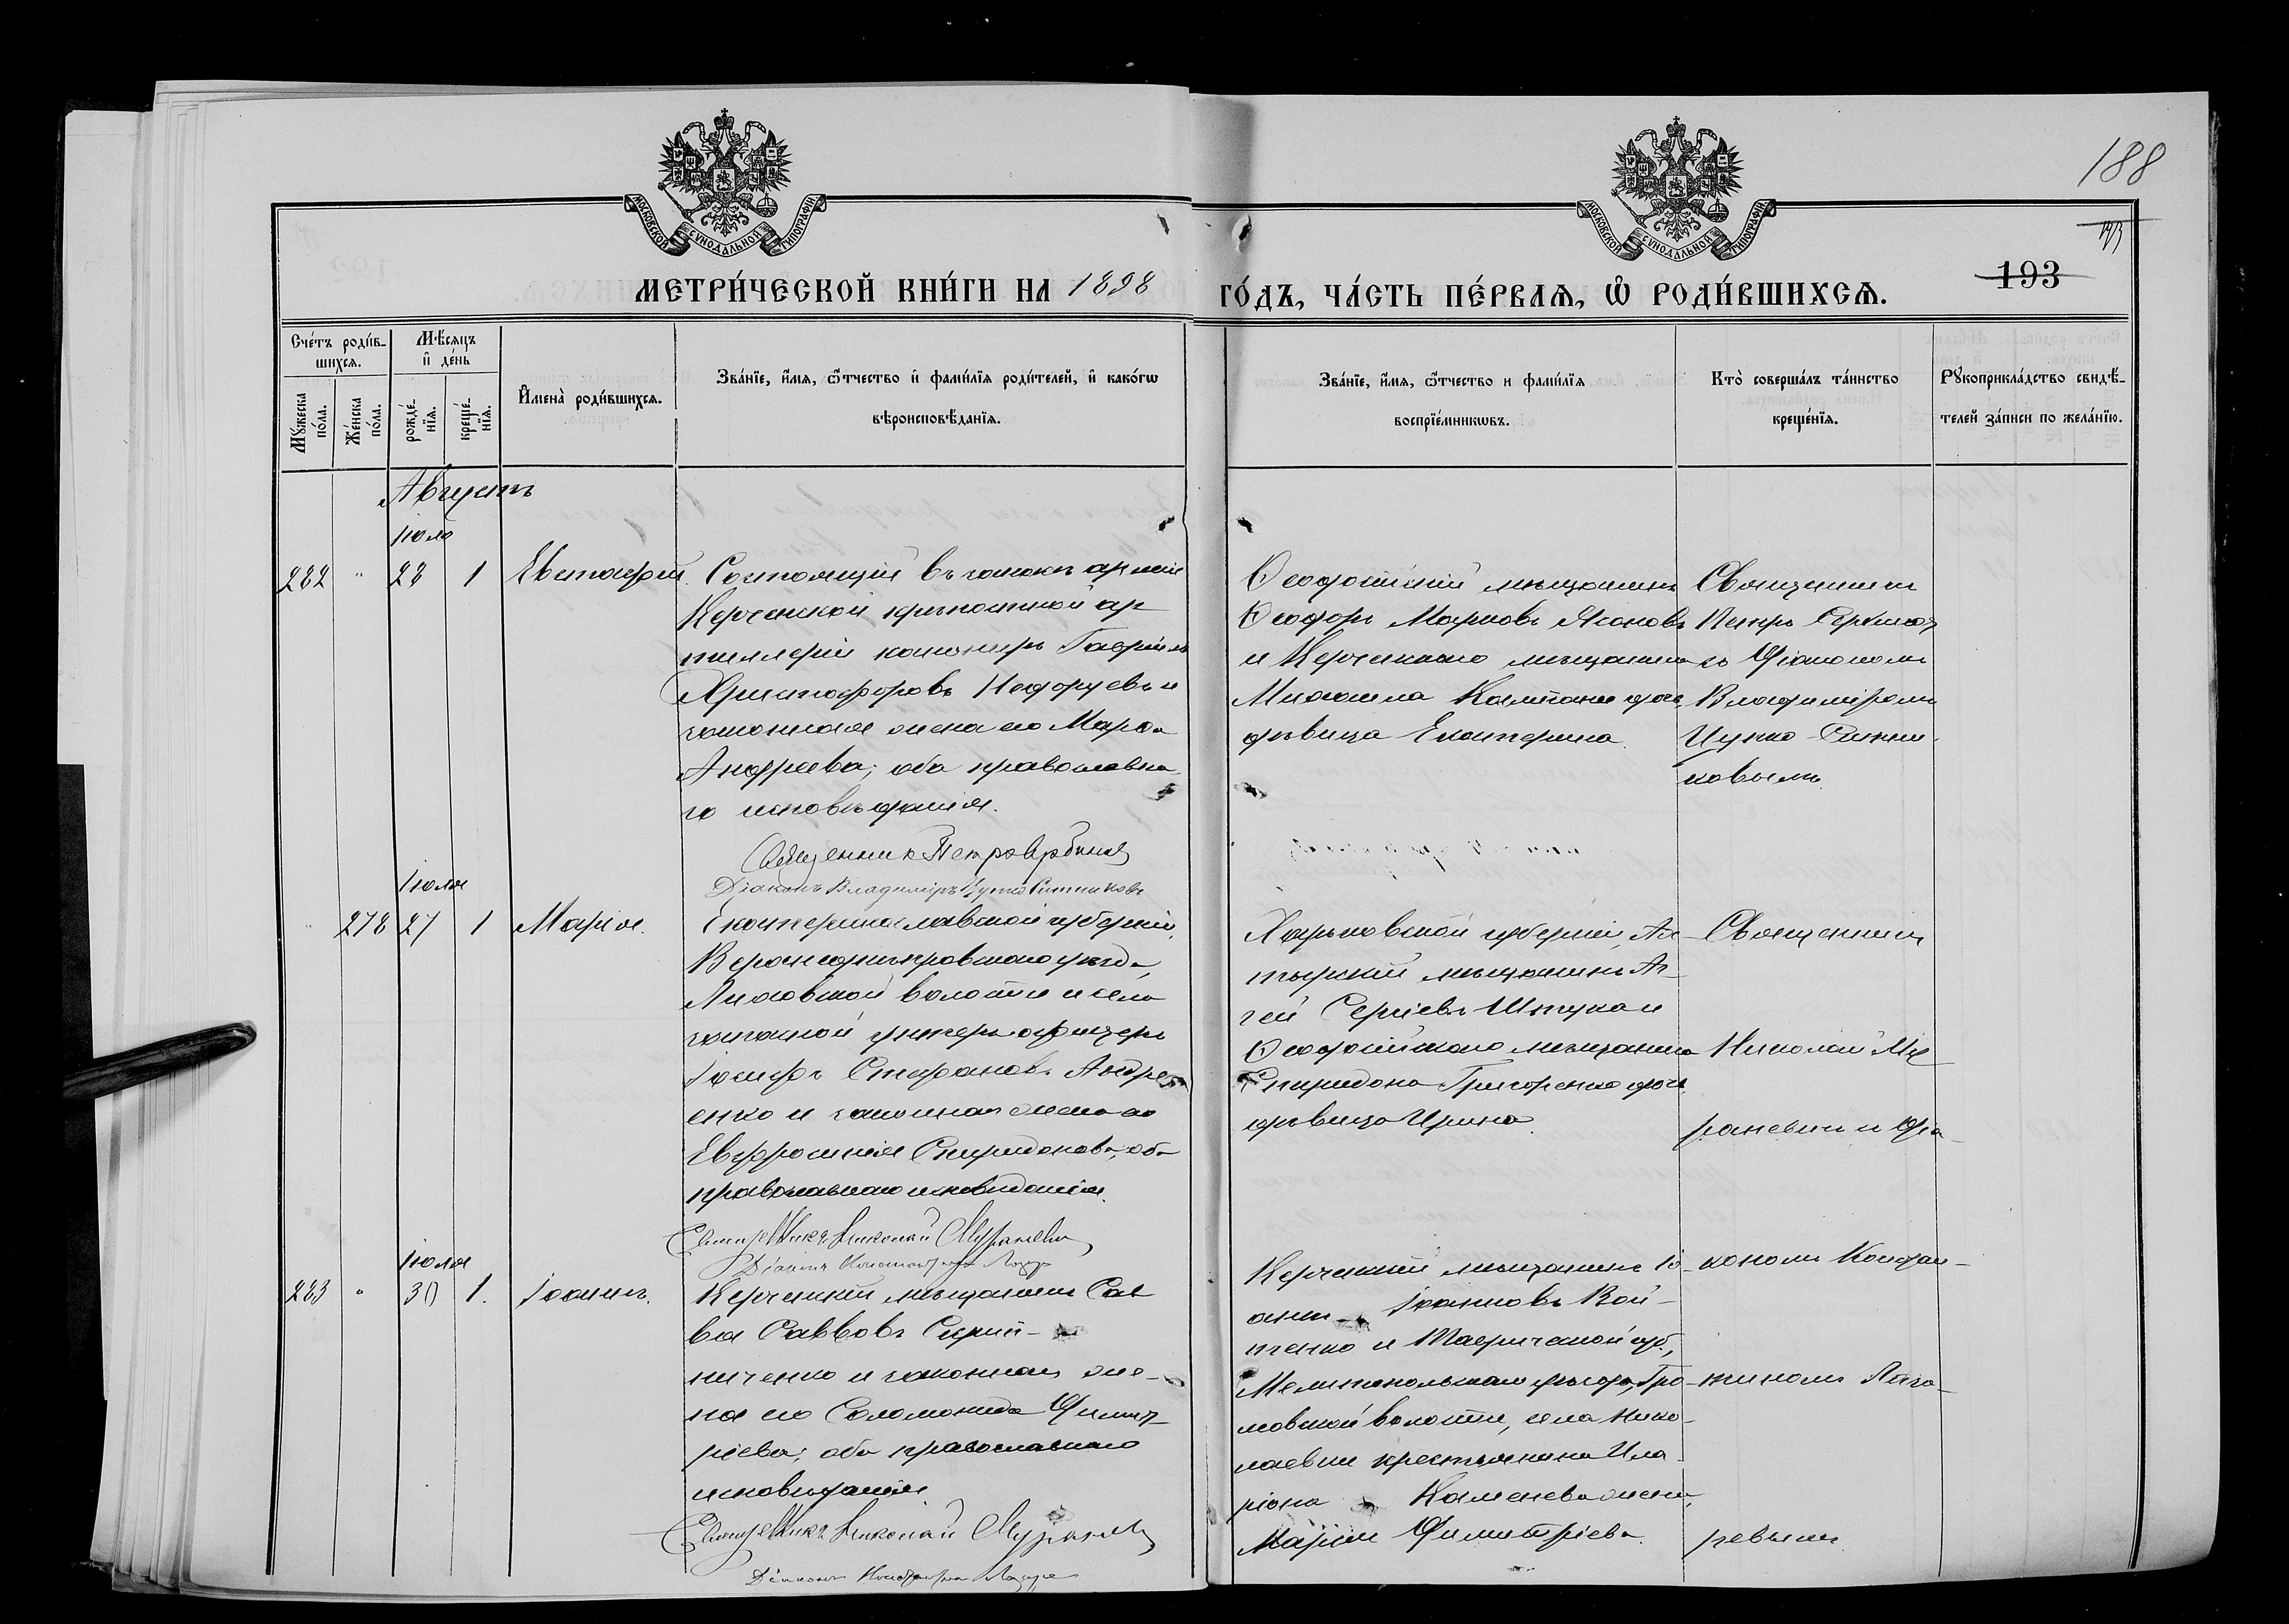 188
193
МОСКОВСКОЙ СѴНОДАЛЬНОЙ ТИПОГРАФІИ
МОСКОВСКОЙ СѴНОДАЛЬНОЙ ТИПОГРАФІИ
МЕТРИ́ЧЕСКОЙ КНИ́ГИ НА 1898 ГО́ДЪ, ЧА́СТЬ ПЕ́РВАѦ, Ѡ҆ РОДИ́ВШИХСѦ.
Сче́тъ роди́в-
шихсѧ.
Мꙋ́жеска
по́ла.
Же́нска
по́ла.
Мѣ́сяцъ
и҆ де́нь
рожде́-
нїѧ.
креще́-
нїѧ.
И҆мена̀ роди́вшихсѧ.
Зва́нїе, и҆́мѧ, ѻ҆́тчество и҆ фами́лїѧ роди́телей, и҆ како́гѡ
вѣроисповѣ́данїѧ.
Зва́нїе, и҆́мѧ, ѻ҆́тчество и фами́лїѧ
воспрїе́мникѡвъ.
Кто̀ соверша́лъ та́инство
креще́нїѧ.
Рꙋкоприкла́дство свидѣ́-
телей за́писи по жела́нїю.
Августъ
Іюля
282 " 28 1 Евстафій.
Состоящій въ запасѣ арміи
Керченской крѣпостной ар
тиллеріи канониръ Гавріилъ
Христофоровъ
законная жена его Марѳа
Андреева; оба православна
го исповѣданія.
Священникъ Петръ Сербиновъ
Діаконъ Владиміръ Цупко Ситниковъ
Ѳеодосійскій мѣщанинъ
Ѳеодоръ Марковъ
и Керченскаго мѣщанина
Михаила дочь
дѣвица Екатерина.
Священникъ
Петръ Сербиновъ
съ Діакономъ
Владиміромъ
Цупко-Ситни-
ковымъ.
Іюля
" 278 27 1 Марія.
Екатеринославской губерніи,
Верхнеднѣпровскаго уѣзда,
Лиховской волости и села
запасной унтеръ-офицеръ
Іосифъ Стефановъ Андре
енко и законная жена его
Евфросинія Спиридонова, оба
православнаго исповѣданія.
Священникъ Николай
Діаконъ Константинъ
Харьковской губерніи, Ах-
тырскій мѣщанинъ Аг-
гей Сергіевъ Штука и
Ѳеодосійскаго мѣщанина
Спиридона Григоренко дочь
дѣвица Ирина.
Священникъ
Николай
раневичъ и діа-
Іюля
283 " 30 1. Іоаннъ.
Керченскій мѣщанинъ Сав
ва Саввовъ
ниченко и законная же-
на его Соломонида Димит
ріева; оба православнаго
исповѣданія.
Священникъ Николай
Діаконъ Константинъ
Керченскій мѣщанинъ Іо-
аннъ Іоанновъ Вой-
тенко и Таврической губ.,
Мелитопольскаго уѣзда,
мовской волости, села Нико-
лаевки крестьянина Ила
ріона Каменева жена
Марія Димитріева.
кономъ Констан-
тиномъ Лаза-
ревымъ